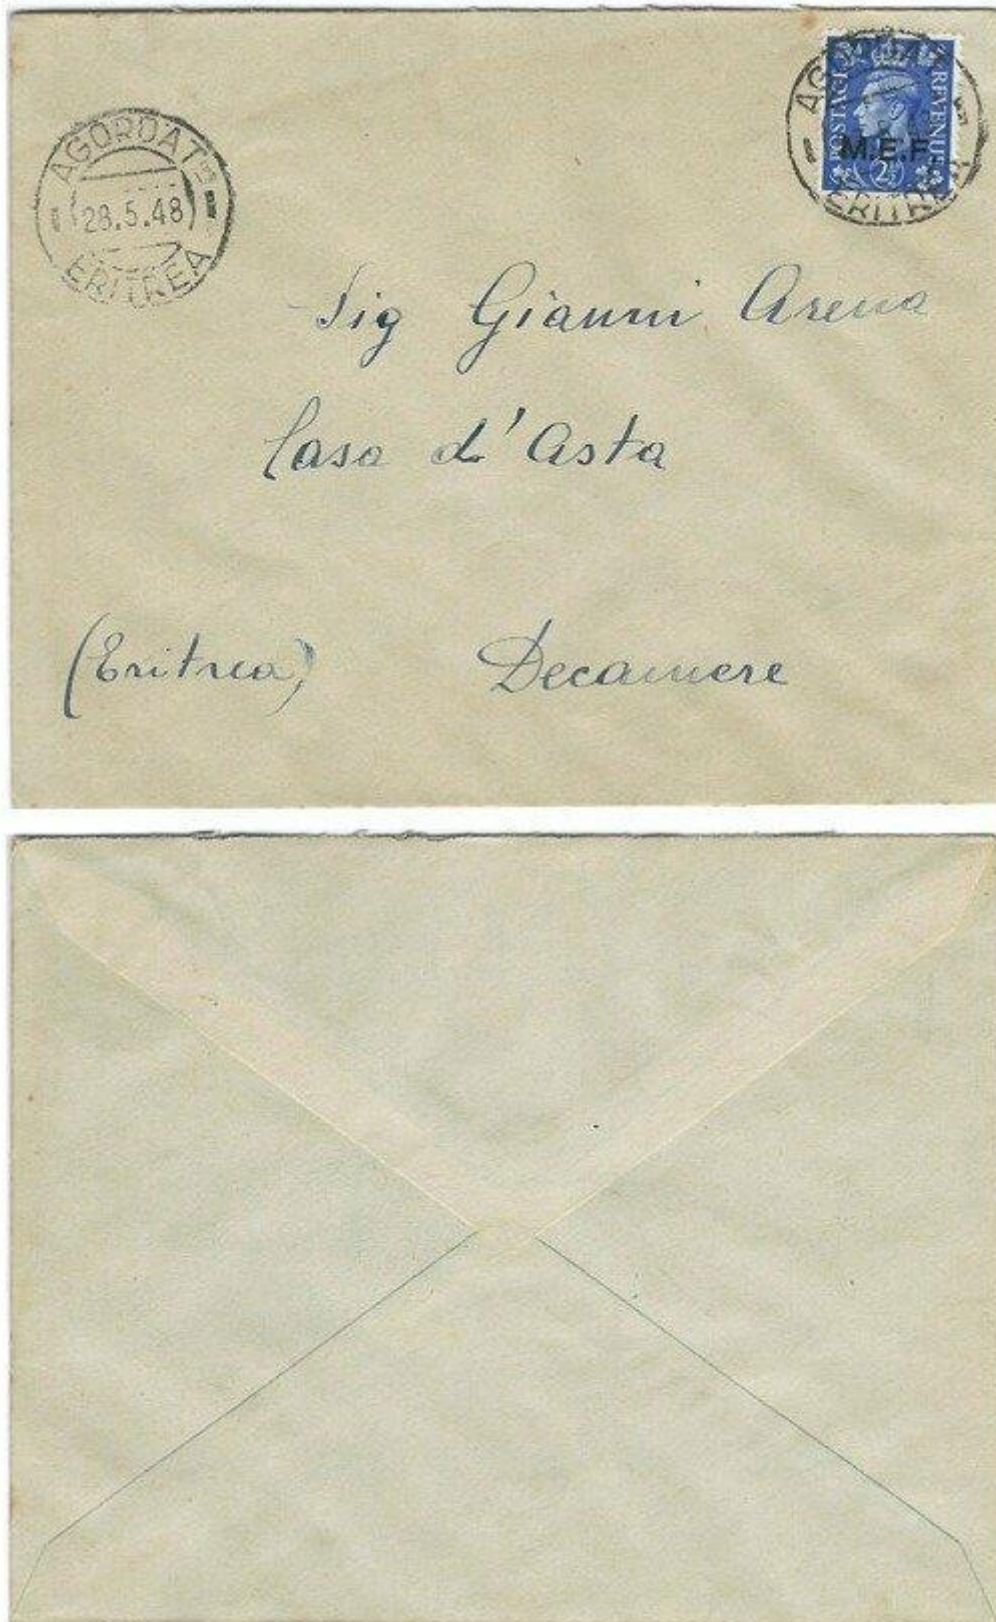 AGORDAT
28.5.48
ERITREA
POSTAGE REVENUE
M.E.F.
2½
ERITREA
Sig Gianni Arena
Casa d'Asta
(Eritrea) Decamere